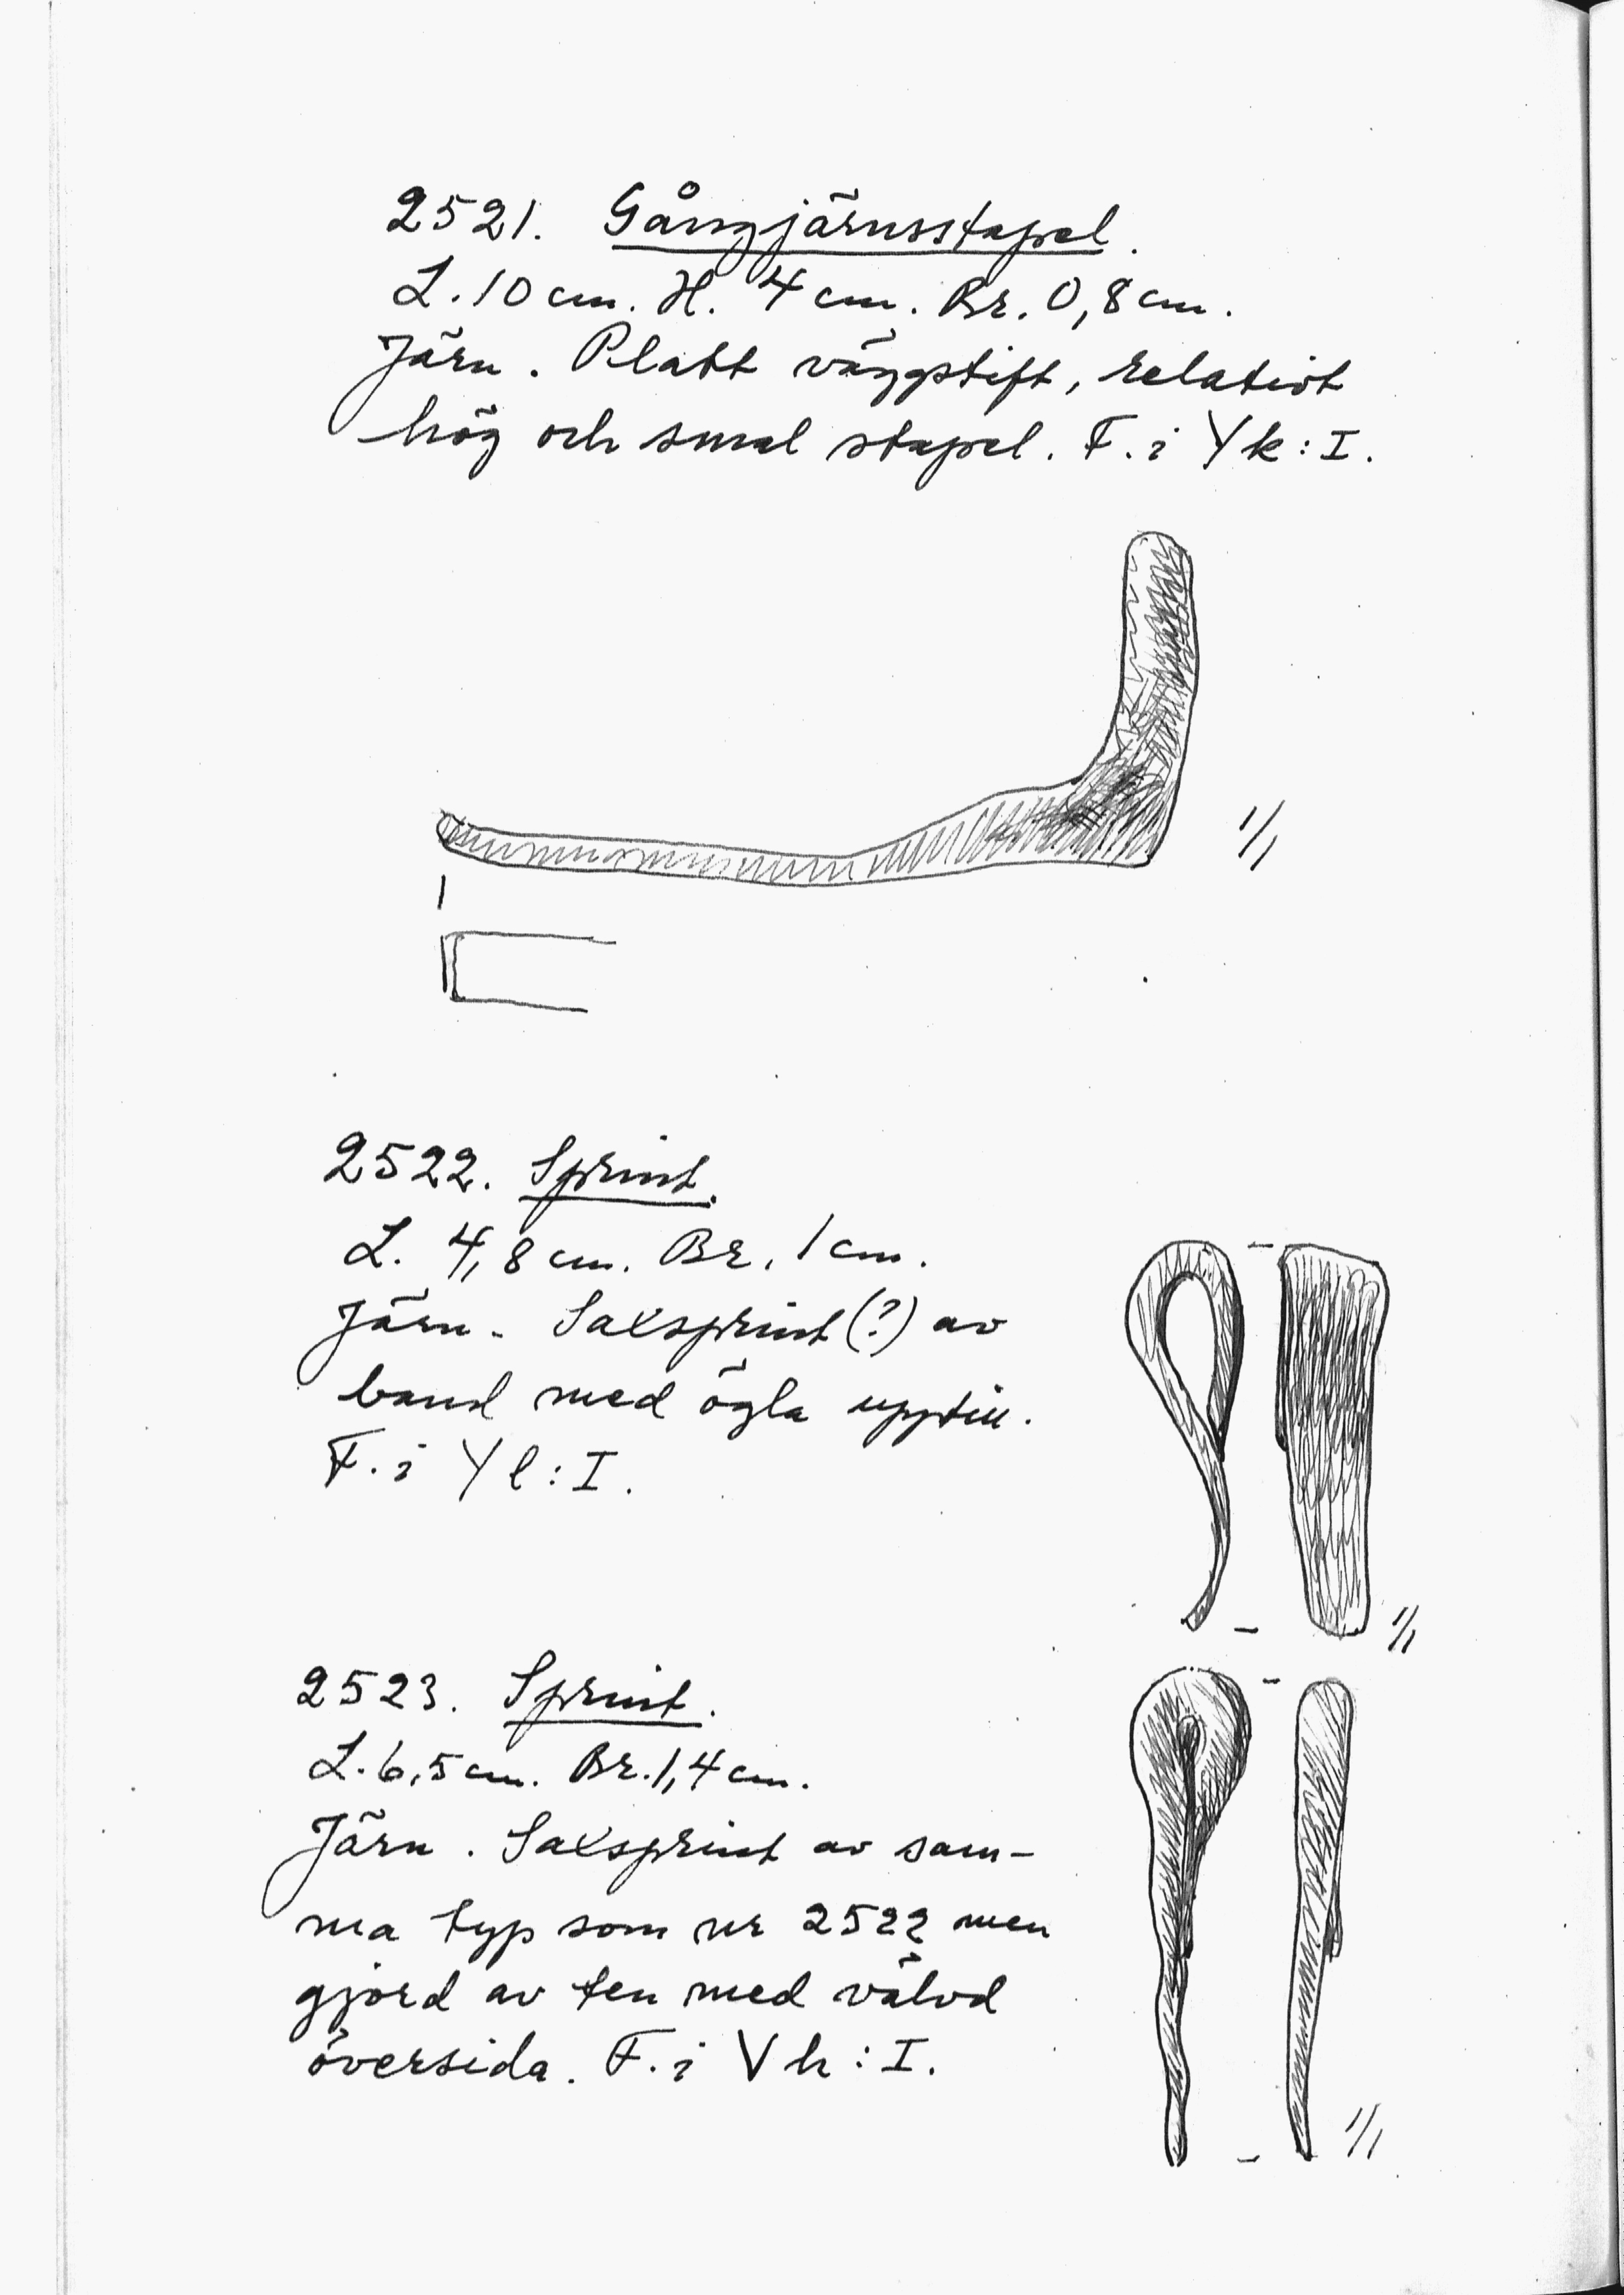 2521. Gångjärnsstapel.
L. 10 cm. H. 4 cm. Br. 0,8 cm.
Järn. Platt väggstift, relativt
hög och smal stapel. F. i Yk: I.
1/1
2522. Sprint.
L. 4,8 cm. Br. 1 cm.
Järn. Saxsprint (?) av
band med ögla upptill.
F. i Yl: I.
1/1
2523. Sprint.
L. 6,5 cm. Br. 1,4 cm.
Järn. Saxsprint av sam-
ma typ som nr 2522 men
gjord av ten med välvd
översida. F. i Vh: I.
1/1